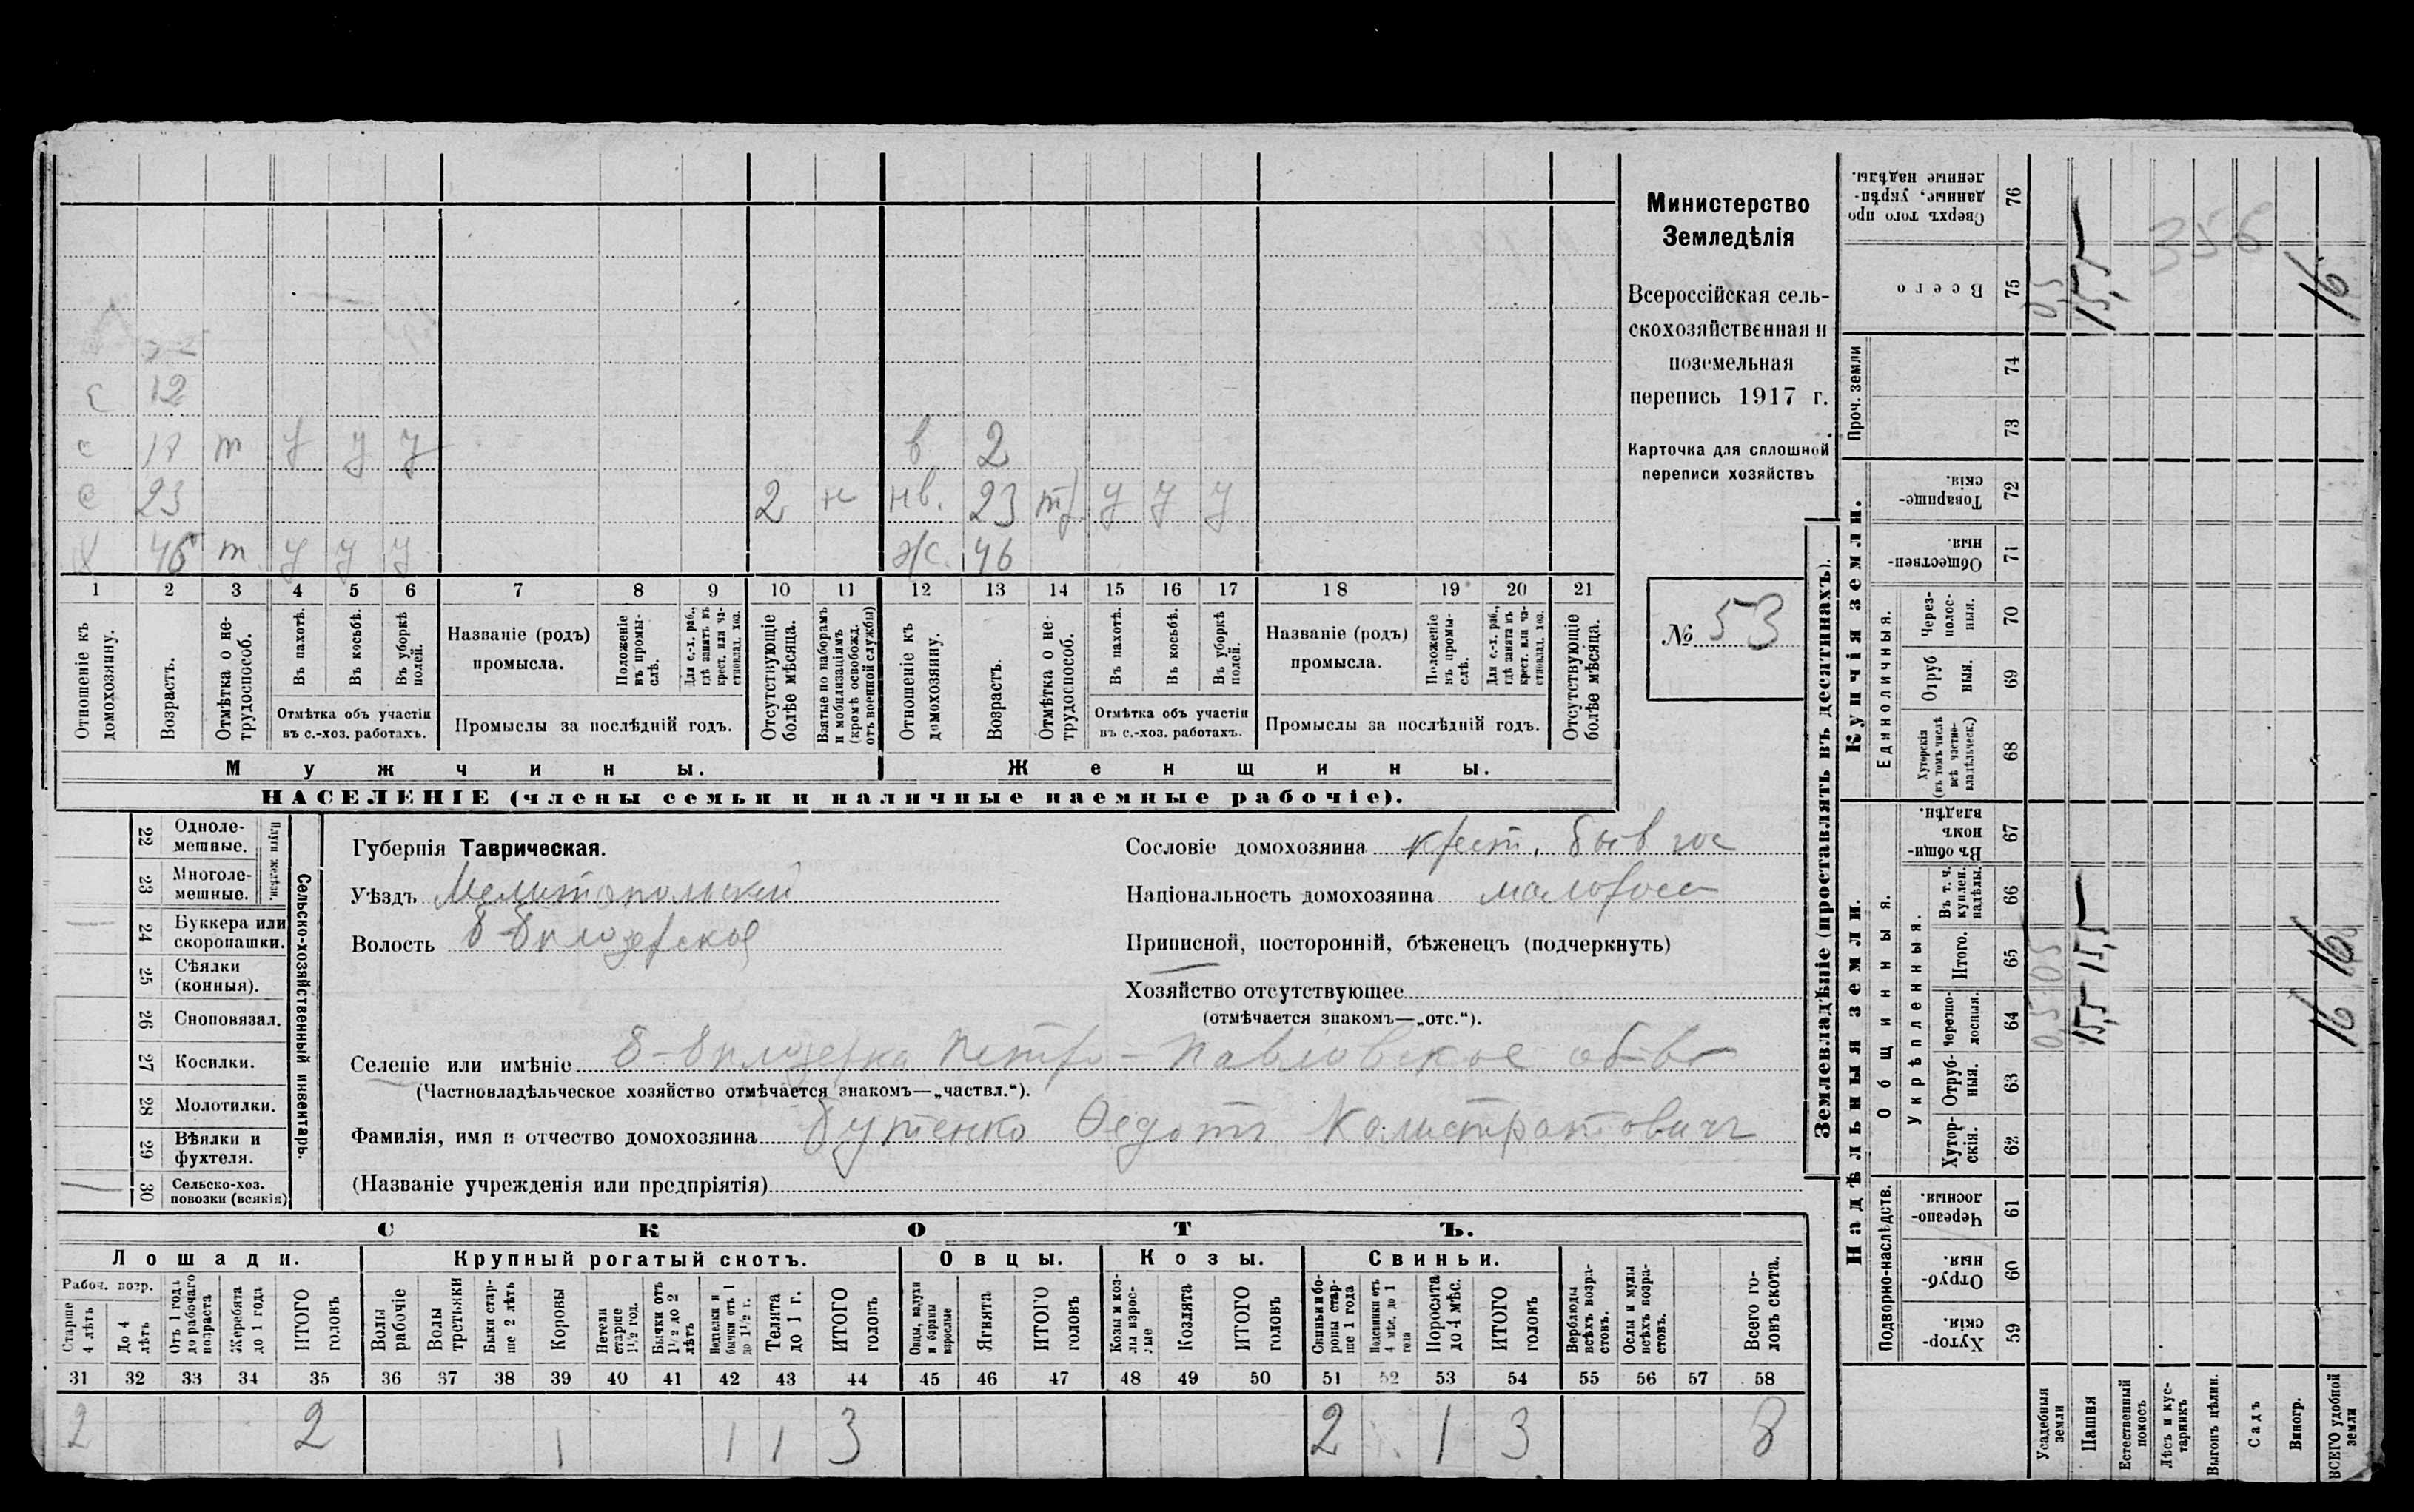 с 12
с 17 т у у у в 2
с 23 2 н нв. 23 т у у у
х 46 т у у у ж. 46
1 2 3 4 5 6 7 8 9 10 11 12 13 14 15 16 17 18 19 20 21
Отношеніе къ домохозяину.
Возрастъ.
Отмѣтка о не-трудоспособ.
Въ пахотѣ.
Въ косьбѣ.
Въ уборкѣ полей.
Отмѣтка объ участіи въ с.-хоз. работахъ.
Названіе (родъ) промысла.
Положеніе въ промы-слѣ.
Для с.-х. раб., гдѣ занятъ въ крест. или ча-стновлад. хоз.
Промыслы за послѣдній годъ.
Отсутствующіе болѣе мѣсяца.
Взятые по наборамъ и мобилизаціямъ (кромѣ освобожд. отъ военной службы)
Отношеніе къ домохозяину.
Возрастъ.
Отмѣтка о не-трудоспособ.
Въ пахотѣ.
Въ косьбѣ.
Въ уборкѣ полей.
Отмѣтка объ участіи въ с.-хоз. работахъ.
Названіе (родъ) промысла.
Положеніе въ промы-слѣ.
Для с.-х. раб., гдѣ занята въ крест. или ча-стновлад. хоз.
Промыслы за послѣдній годъ.
Отсутствующіе болѣе мѣсяца.
Мужчины.
Женщины.
НАСЕЛЕНІЕ (члены семьи и наличные наемные рабочіе).
Министерство
Земледѣлія
Всероссійская сель-
скохозяйственная и
поземельная
перепись 1917 г.
Карточка для сплошной
переписи хозяйствъ
№ 53
22 Одноле-мешные.
23 Многоле-мешные.
Плуги желѣзн.
24 Буккера или скоропашки.
25 Сѣялки (конныя).
26 Сноповязал.
27 Косилки.
28 Молотилки.
29 Вѣялки и фухтеля.
30 Сельско-хоз. повозки (всякія)
Сельско-хозяйственный инвентарь.
Губернія Таврическая.
Уѣздъ Мелитопольский
Волость Б-Бѣлозерское
Сословіе домохозяина крест. быв гос
Національность домохозяина малоросс
Приписной, посторонній, бѣженецъ (подчеркнуть)
Хозяйство отсутствующее
(отмѣчается знакомъ—„отс.“).
Селеніе или имѣніе Б-Бѣлозерка Петро-Павловское об-во
(Частновладѣльческое хозяйство отмѣчается знакомъ—„частвл.“).
Фамилія, имя и отчество домохозяина Бутенко Ѳедотъ Калистратовичъ
(Названіе учрежденія или предпріятія)
СКОТЪ.
Лошади. Крупный рогатый скотъ. Овцы. Козы. Свиньи.
Рабоч. возр.
Старше 4 лѣтъ
До 4 лѣтъ
Отъ 1 года до рабочаго возраста
Жеребята до 1 года
ИТОГО головъ
Волы рабочіе
Волы третьяки
Быки стар-ше 2 лѣтъ
Коровы
Нетели старше 1½ год.
Бычки отъ 1½ до 2 лѣтъ
Неделки и бычки отъ 1 до 1½ г.
Телята до 1 г.
ИТОГО головъ
Овцы, валухи и бараны взрослые
Ягнята
ИТОГО головъ
Козы и коз-лы взрос-лые
Козлята
ИТОГО головъ
Свиньи и бо-ровы стар-ше 1 года
Подсвинки отъ 4 мѣс. до 1 года
Поросята до 4 мѣс.
ИТОГО головъ
Верблюды всѣхъ возра-стовъ.
Ослы и мулы всѣхъ возра-стовъ.
Всего го-ловъ скота.
31 32 33 34 35 36 37 38 39 40 41 42 43 44 45 46 47 48 49 50 51 52 53 54 55 56 57 58
2 2 1 1 1 3 2 1 3 8
Землевладѣніе (проставлять въ десятинахъ).
Надѣльныя земли. Купчія земли. Проч. земли
Подворно-наслѣдств.
Общинныя.
Укрѣпленныя.
Единоличныя.
Хутор-скія. 59
Отруб-ныя. 60
Черезпо-лосныя. 61
Хутор-скія. 62
Отруб-ныя. 63
Черезпо-лосныя. 64
Итого. 65
Въ т. ч. куплен. надѣлы. 66
Въ общи-номъ владѣн. 67
Хуторскія (въ томъ числѣ всѣ частно-владѣльческ.) 68
Отруб ныя. 69
Через-полос-ныя. 70
Обществен-ныя. 71
Товарище-скія. 72
73
74
Всего 75
Сверхъ того про данные, укрѣп-ленные надѣлы. 76
Усадебныя земли 0,5 0,5 0,5
Пашня 15,5 15,5 15,5
Естественный покосъ
Лѣсъ и кус-тарникъ
Выгонъ цѣлин.
Садъ
Виногр.
ВСЕГО удобной земли 16 16 16
356